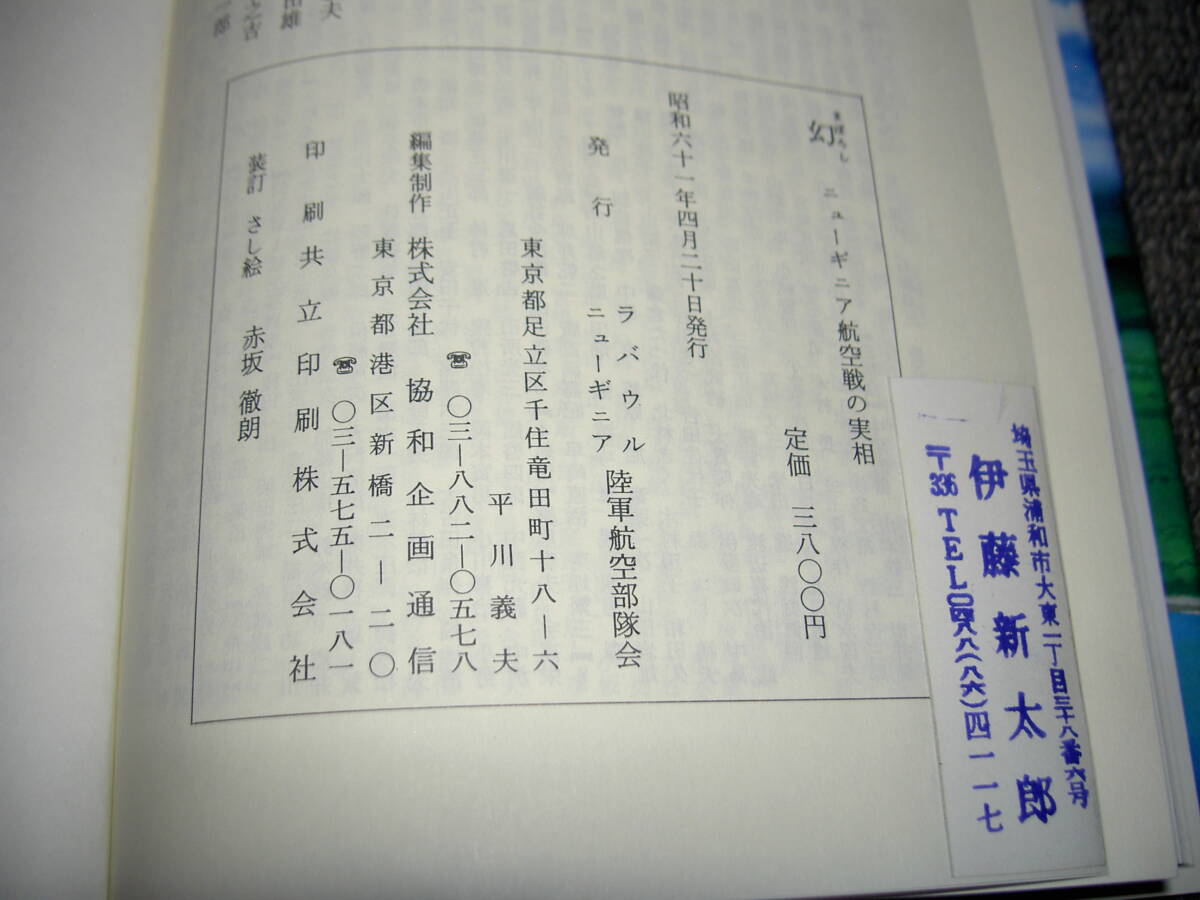 幻 ニューギニア航空戦の実相
まぼろし
定価 三八〇〇円
昭和六十一年四月二十日発行
発行 ラバウル ニューギニア 陸軍航空部隊会
東京都足立区千住竜田町十八ー六
平川義夫
☎〇三ー八八二ー〇五七八
編集制作 株式会社 協和企画通信
東京都港区新橋二ー二〇
☎〇三ー五七五ー〇一八一
印刷 共立印刷株式会社
装訂 さし絵 赤坂徹朗
埼玉県浦和市大東一丁目三十八番六号
伊藤新太郎
〒336 TEL〇四八八(八六)四一一七
夫
雄
吉
郎